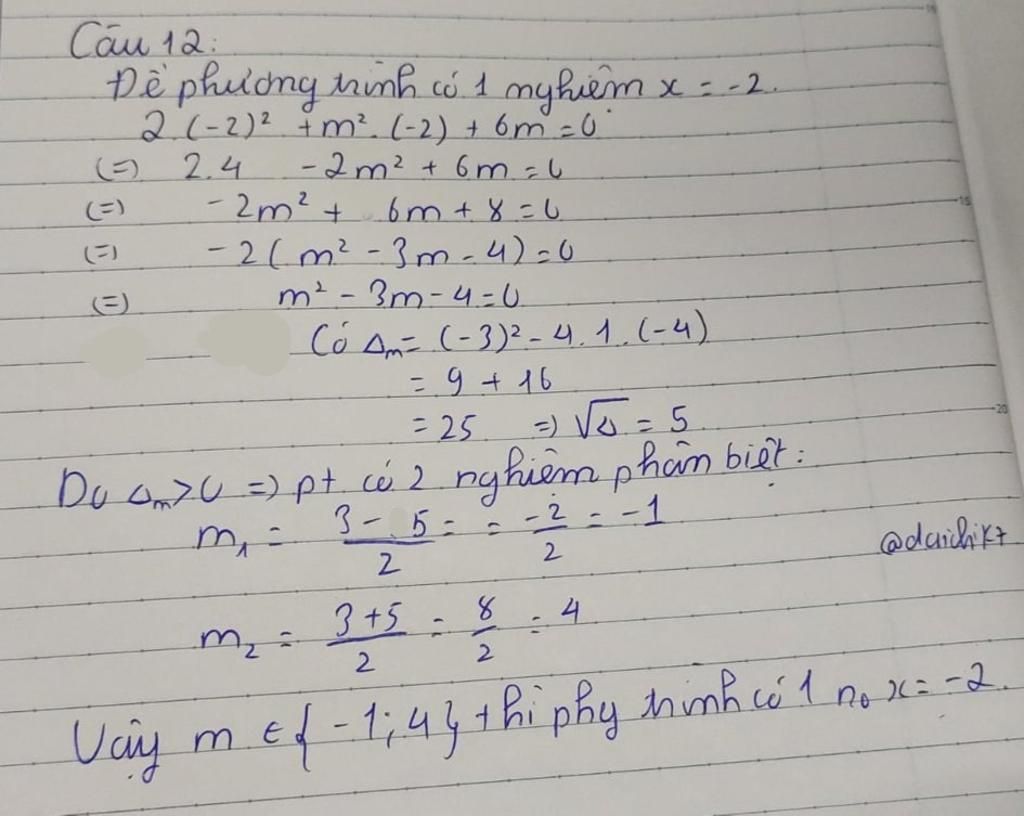 Câu 12:
Để phương trình có 1 nghiệm x = -2.
2.(-2)² + m².(-2) + 6m = 0
(=) 2.4 - 2m² + 6m = 0
(=) -2m² + 6m + 8 = 0
(=) -2(m² - 3m - 4) = 0
(=) m² - 3m - 4 = 0
Có Δₘ = (-3)² - 4.1.(-4)
= 9 + 16
= 25 => √Δ = 5
Do Δₘ > 0 => pt có 2 nghiệm phân biệt:
m₁ = (3 - 5)/2 = = -2/2 = -1
@daichik7
m₂ = (3+5)/2 = 8/2 = 4
Vậy m ∈ {-1; 4} thì phg trình có 1 n₀ x = -2.